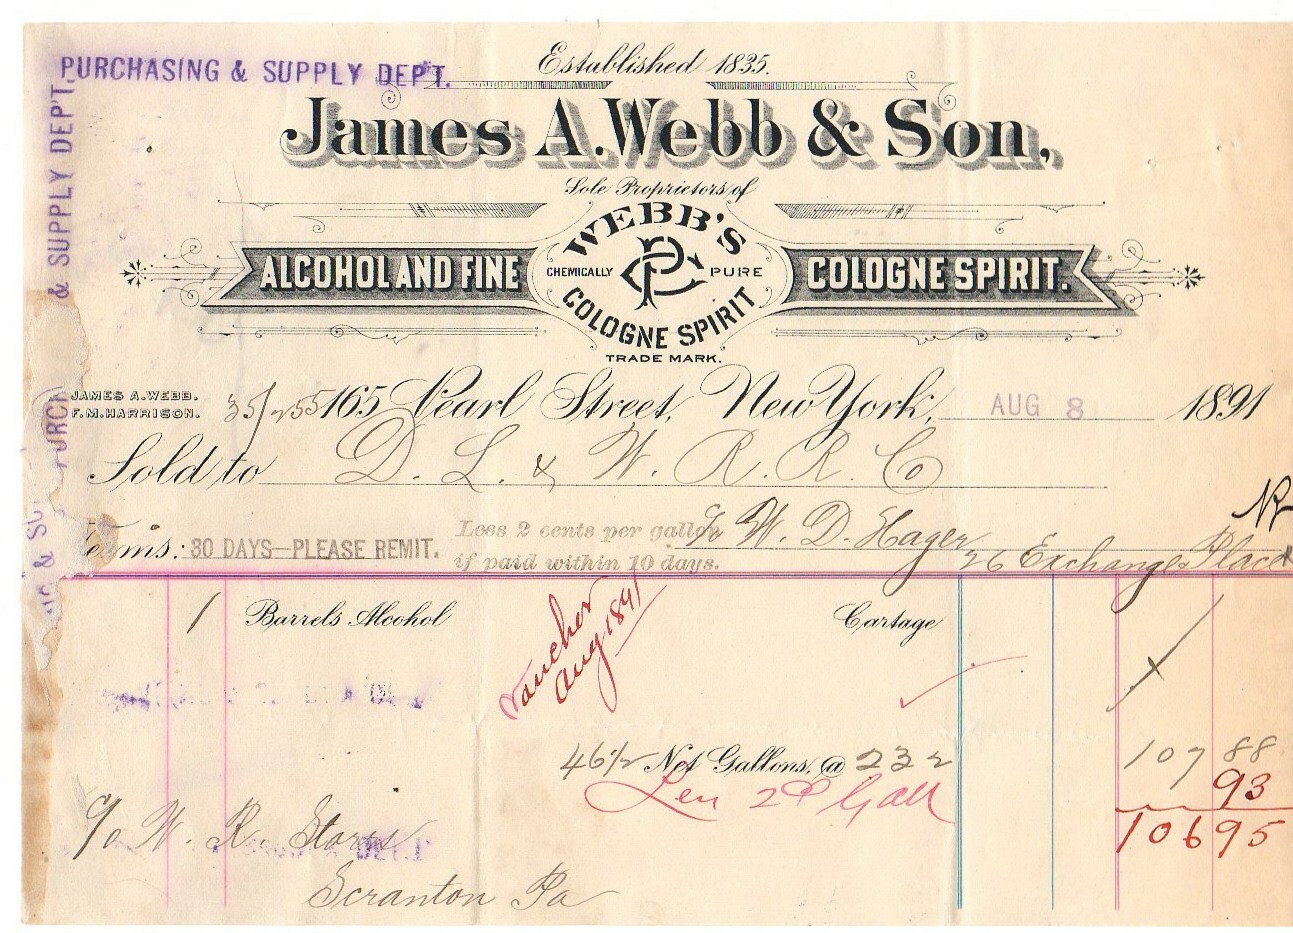 PURCHASING & SUPPLY DEPT.
& SUPPLY DEP'T.
Established 1835.
James A. Webb & Son,
Sole Proprietors of
WEBB'S
ALCOHOL AND FINE
CHEMICALLY PURE
COLOGNE SPIRIT.
COLOGNE SPIRIT
TRADE MARK.
JAMES A. WEBB.
F. M. HARRISON.
35/255
165 Pearl Street, New York, AUG 8 1891
Sold to D. L. & W. R. R. Co
Terms: 30 DAYS—PLEASE REMIT.
Less 2 cents per gallon
if paid within 10 days.
c/o W. D. Hager
26 Exchange Place
1 Barrels Alcohol Cartage
Voucher
Aug 1891
46 1/2 Net Gallons, @ 232 107 88
Less 2¢ Gall 93
106 95
c/o W. R. Storrs
Scranton Pa